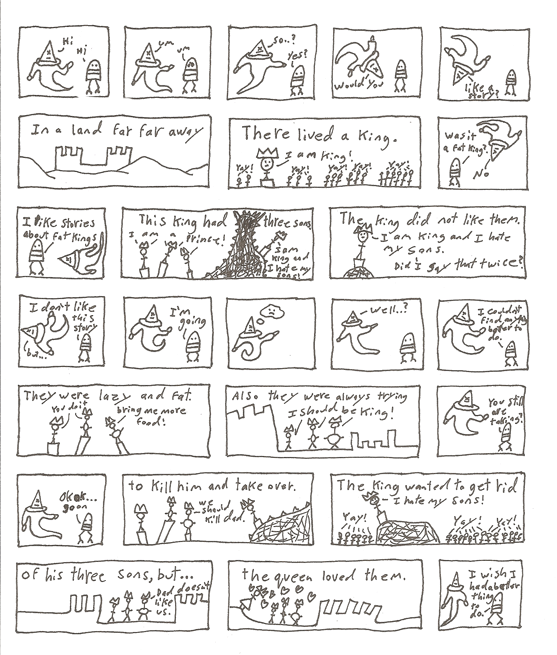 Hi
Hi
um
um
so..?
Yes?
would you
like a
story?
In a land far far away
There lived a King.
I am King!
Yay!
Yay!
Yay!
Yay!
Yay!
was it
a fat king?
No
I like stories
about fat kings
This King had
three sons
I am a
Prince!
I am
King and
I hate my
sons!
The king did not like them.
I am King and I hate
my sons.
Did I say that twice?
I don't like
this
story
but...
I'm
going
well..?
I couldn't
find anything
better to
do.
They were lazy and fat.
You do it
bring me more
food!
Also they were always trying
I should be King!
You still
are
talking?
Ok ok...
go on
to kill him and take over.
we
should
kill dad.
The King wanted to get rid
I hate my sons!
Yay!
Yay!
Yay!
of his three sons, but...
Dad doesn't
like
us.
the queen loved them.
I wish I
had a better
thing
to
do.